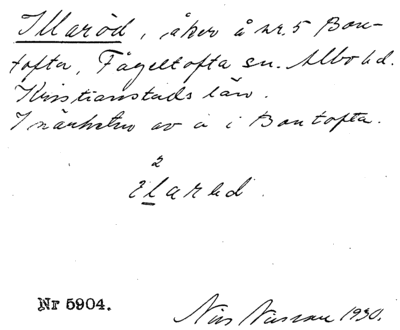 Illaröd, åker å nr. 5 Bon-
tofta, Fågeltofta sn. Albo hd.
Kristianstads län.
I närheten av å i Bontofta.
2
Nr 5904.
Nils Nilsson 1930.